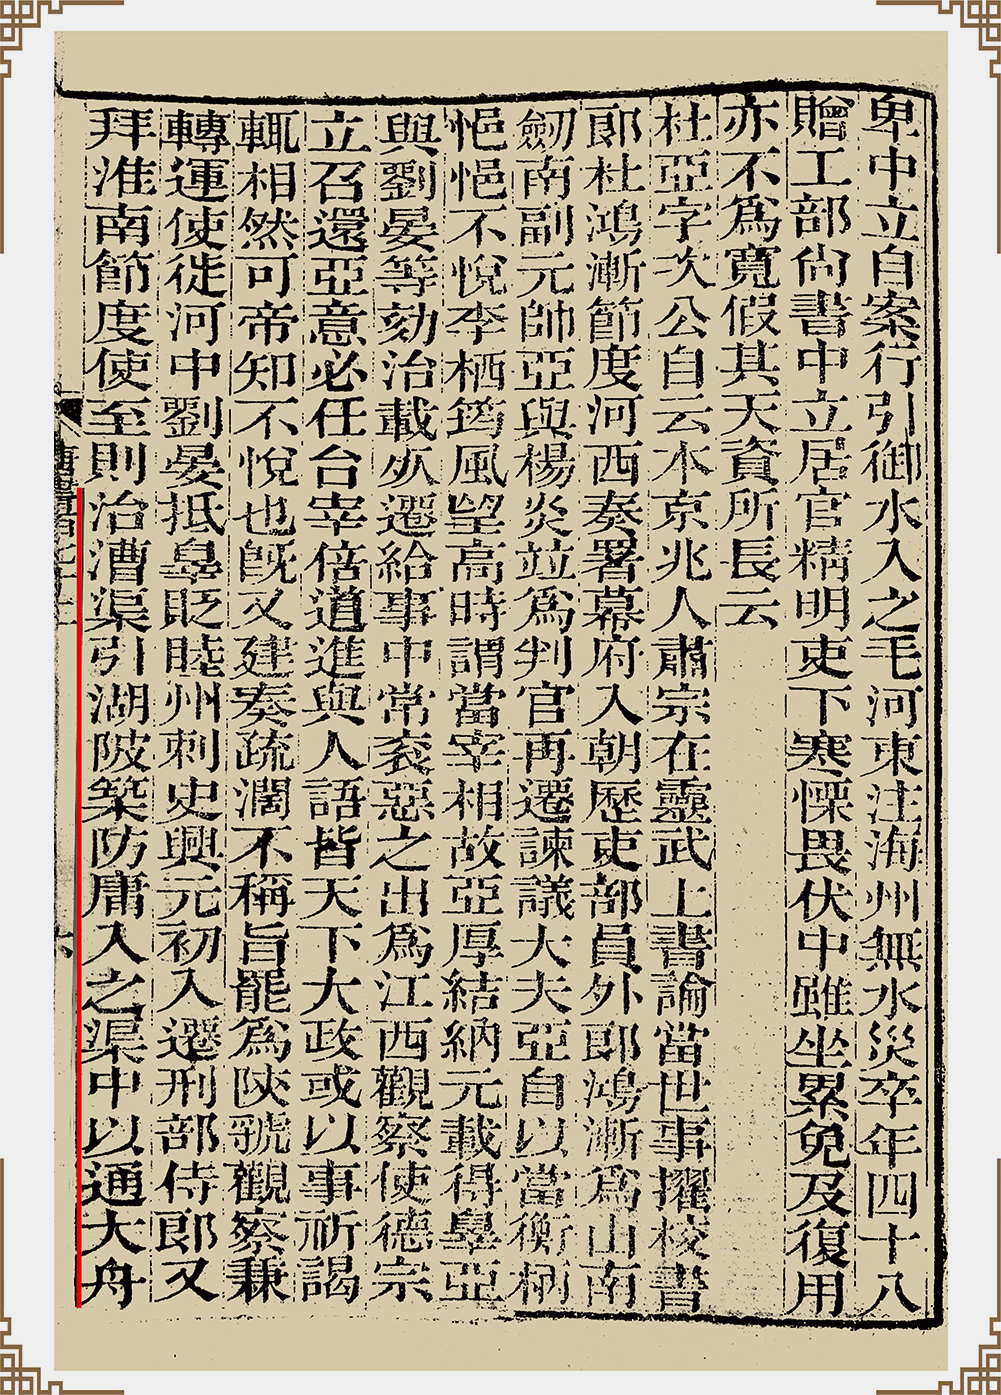 卑中立自案行引御水入之毛河東注海州無水災卒年四十八
贈工部尙書中立居官精明吏下寒慄畏伏中雖坐累免及復用
亦不爲寬假其天資所長云
杜亞字次公自云本京兆人肅宗在靈武上書論當世事擢校書
郞杜鴻漸節度河西奏署幕府入朝歷吏部員外郞鴻漸爲山南
劒南副元帥亞與楊炎竝爲判官再遷諫議大夫亞自以當衡柄
悒悒不悅李栖筠風望高時謂當宰相故亞厚結納元載得辠亞
與劉晏等劾治載死遷給事中常衮惡之出爲江西觀察使德宗
立召還亞意必任台宰倍道進與人語皆天下大政或以事祈謁
輒相然可帝知不悅也旣又建奏疏濶不稱旨罷爲陝虢觀察兼
轉運使徙河中劉晏抵辠貶睦州刺史興元初入遷刑部侍郞又
拜淮南節度使至則治漕渠引湖陂築防庸入之渠中以通大舟